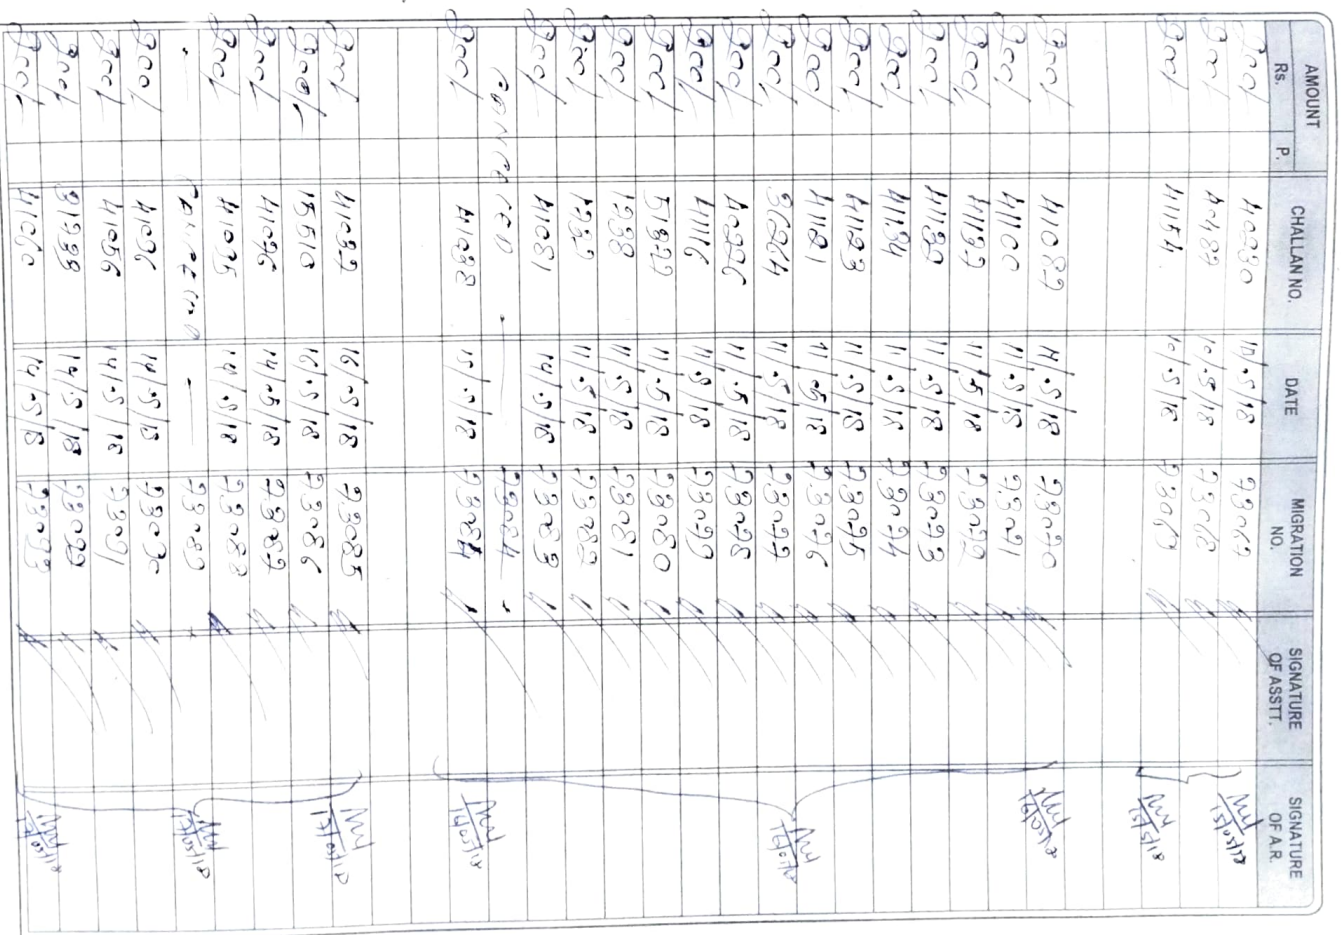 AMOUNT Rs. P. CHALLAN NO. DATE MIGRATION NO. SIGNATURE OF ASSTT. SIGNATURE OF A.R.
300/- 10/5/18 73067 15/05/18
300/- 40487 10/5/18 73068
300/- 41154 10/5/18 73069 15/5/18
300/- 41087 11/5/18 73070 16/05/18
300/- 41100 11/5/18 73071
300/- 41137 11/5/18 73072
300/- 11/5/18 73073
300/- 41134 11/5/18 73074
300/- 41123 11/5/18 73075
300/- 41121 11/5/18 73076
300/- 36264 11/5/18 73077
300/- 40776 11/5/18 73078
300/- 41116 11/5/18 73079
300/- 51877 11/5/18 73080
300/- 1738 11/5/18 73081
300/- 1737 11/5/18 73082
300/- 41081 14/5/18 73083
CANCELLED - 73084 -
300/- 41038 15/5/18 73084 16/05/18
300/- 41037 16/5/18 73085 17/05/18
300/- 15510 16/5/18 73086
300/- 41076 14/5/18 73087
300/- 41075 14/5/18 73088
- CANCELLED - 73089 - 17/05/18
300/- 41036 14/5/18 73090
300/- 41056 14/5/18 73091
300/- 31738 14/5/18 73092
300/- 41060 14/5/18 73093 17/05/18